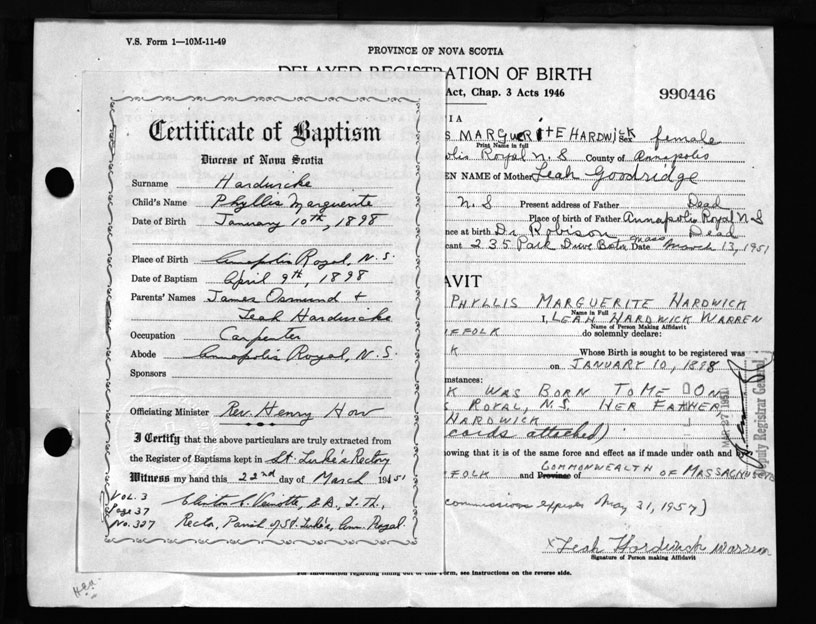 V.S. Form 1—10M-11-49
PROVINCE OF NOVA SCOTIA
DELAYED REGISTRATION OF BIRTH
Act, Chap. 3 Acts 1946
990446
Certificate of Baptism
Diocese of Nova Scotia
Surname Hardwicke
Child's Name Phyllis Marguerite
Date of Birth January 10th, 1898
Place of Birth Annapolis Royal, N.S.
Date of Baptism April 9th, 1898
Parents' Names James Osmund &
Leah Hardwicke
Occupation Carpenter
Abode Annapolis Royal, N.S.
Sponsors
Officiating Minister Rev. Henry How
I Certify that the above particulars are truly extracted from
the Register of Baptisms kept in St. Luke's Rectory
Witness my hand this 22nd day of March 1951
VOL. 3
Page 37
No. 327
Rector, Parish of St. Luke's, Ann. Royal.
IA
S MARGUERITE HARDWICK Sex female
Print Name in full
olis Royal N.S County of Annapolis
EN NAME of Mother Leah Goodridge
N.S Present address of Father Dead
Place of birth of Father Annapolis Royal N.S
nce at birth Dr Robison Dead
cant 235 Park Drive Boston Mass Date March 13, 1951
AVIT
PHYLLIS MARGUERITE HARDWICK
Name in Full
I, LEAH HARDWICK WARREN
Name of Person Making Affidavit
FFOLK do solemnly declare:
K Whose Birth is sought to be registered was
on JANUARY 10, 1898
mstances:
K WAS BORN TO ME ON
S ROYAL, N.S. HER FATHER
HARDWICK
cords attached)
MAR 27 1951
Deputy Registrar General
owing that it is of the same force and effect as if made under oath and
FFOLK and Province of COMMONWEALTH OF MASSACHUSETTS
commission expires May 31, 1957)
x Leah Hardwick Warren
Signature of Person making Affidavit
For information regarding filling out of this Form, see instructions on the reverse side.